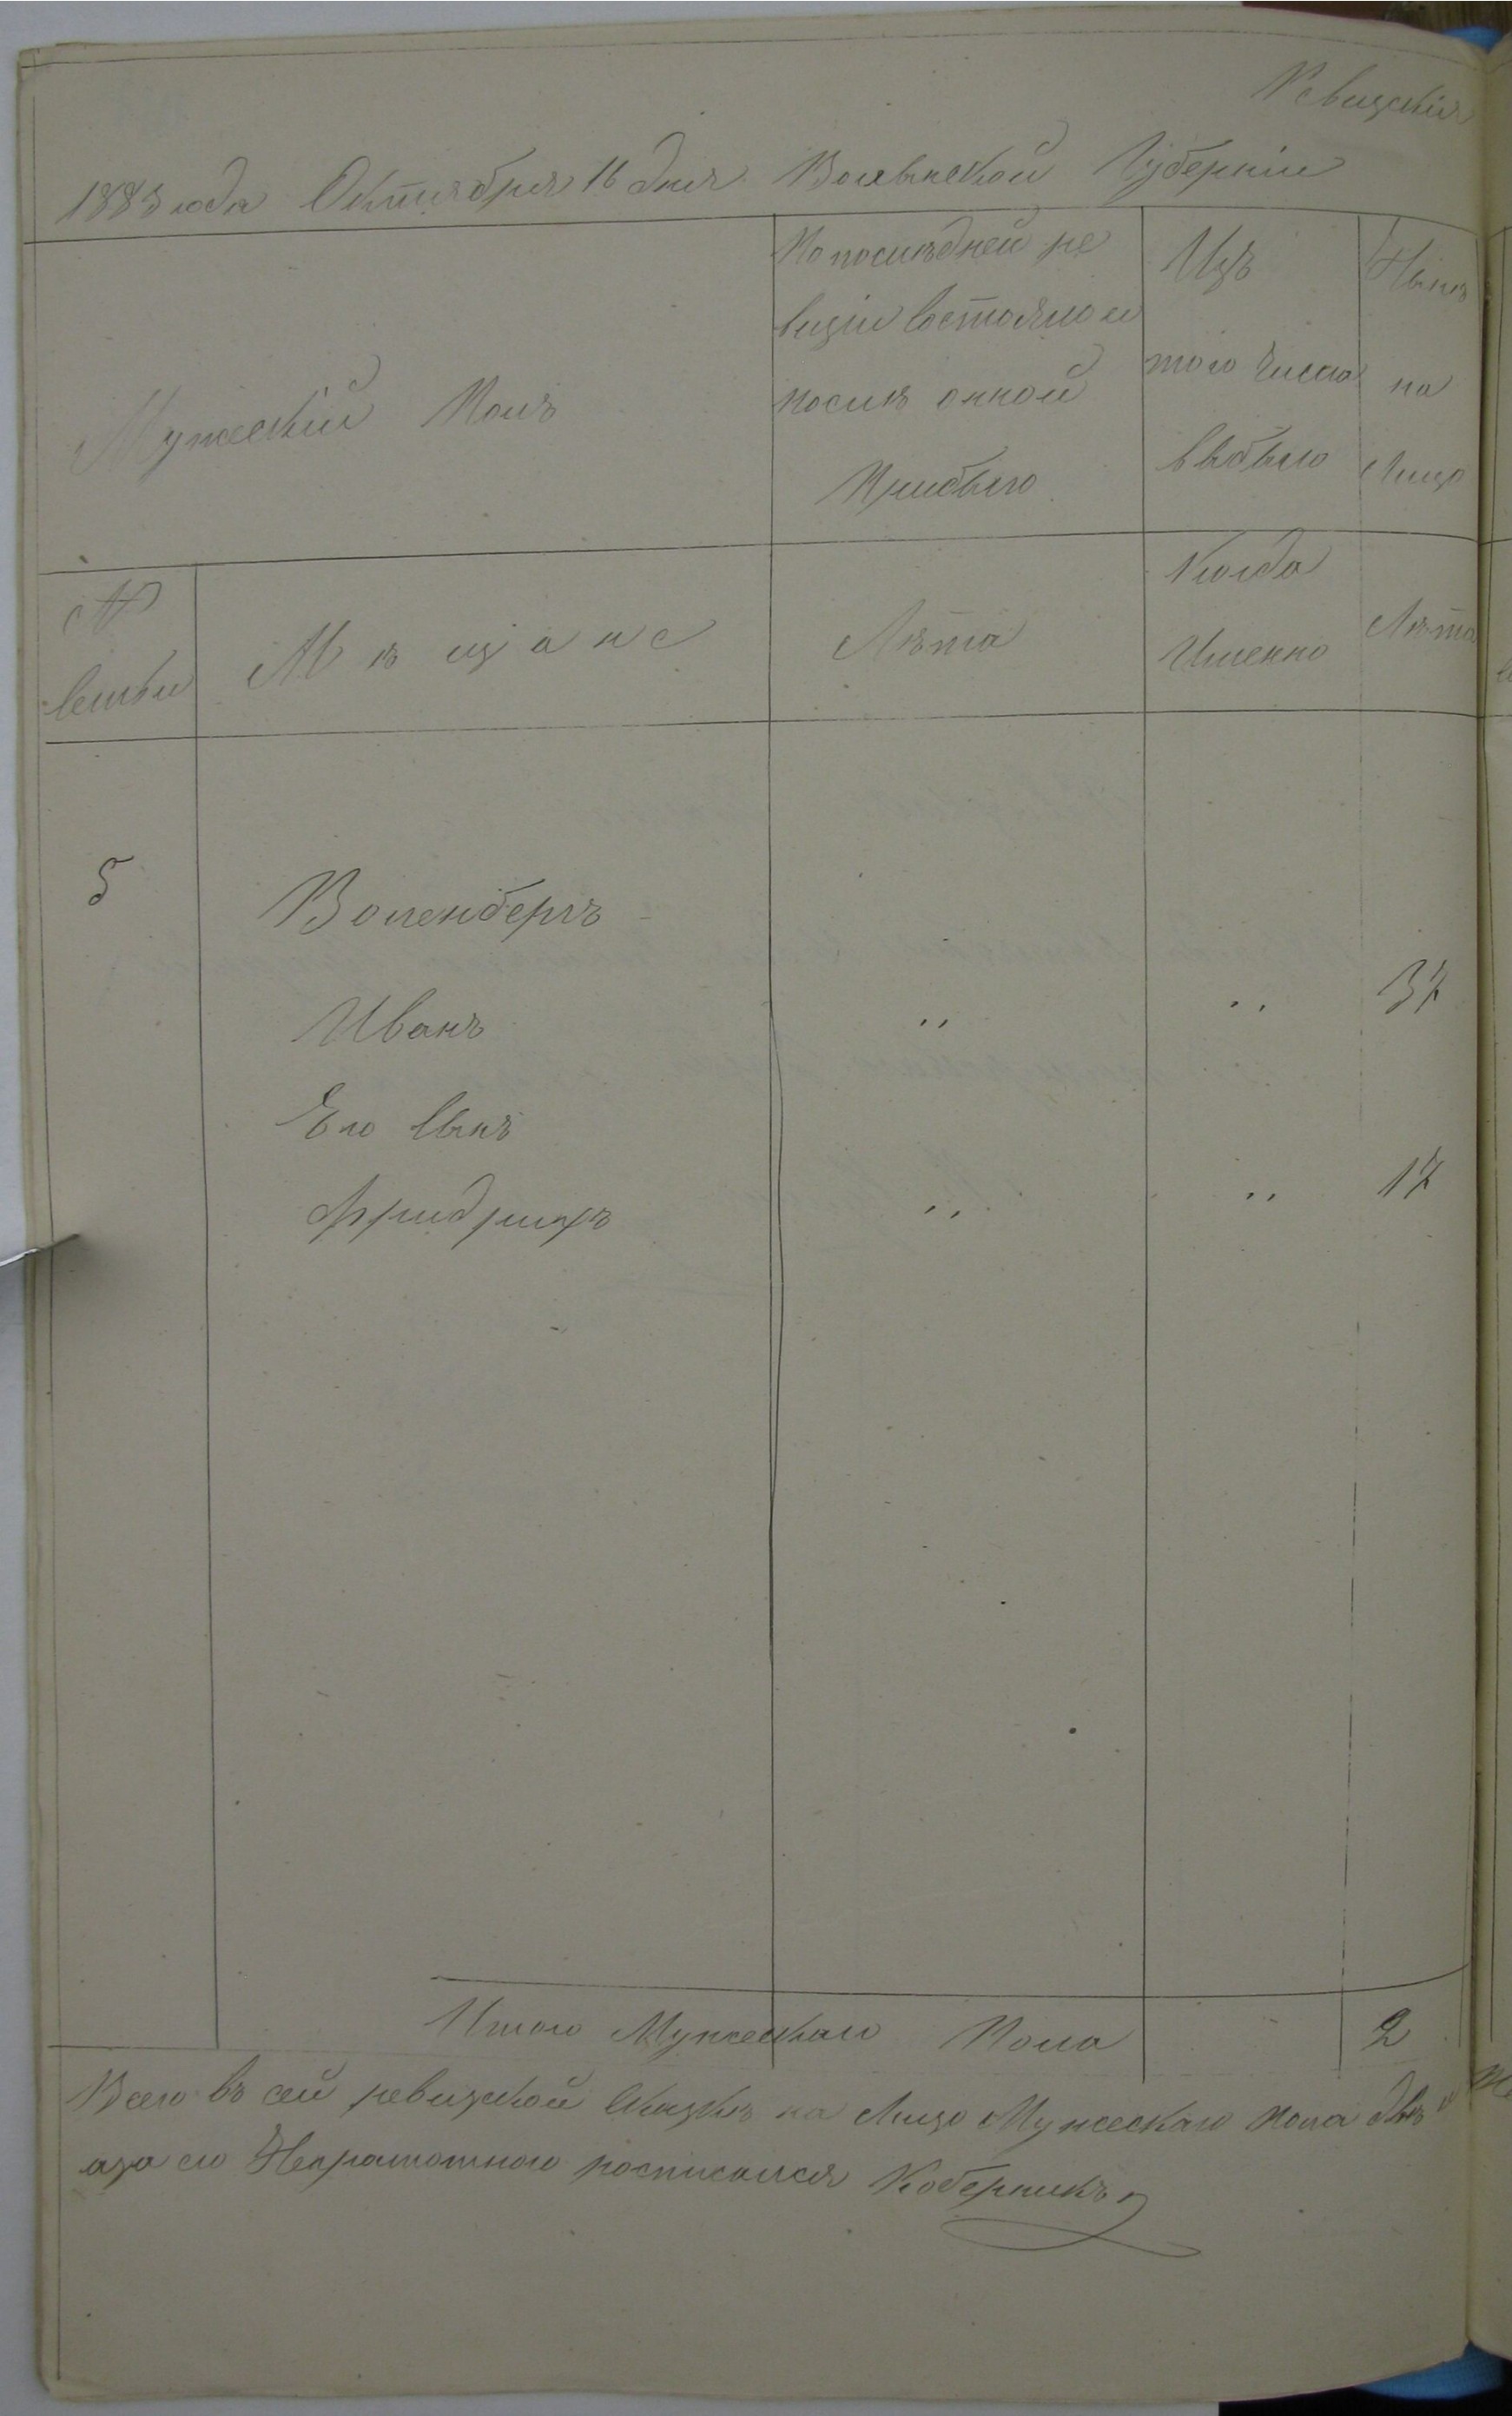 Ревизскія
1883 года Октября 16 дня Волынской Губерніи
Мужескій Полъ
По последней ре
визіи состояло и
после оной
Прибыло
Изъ
того числа
выбыло
Нынѣ
на
Лицо
№
семьи
Мѣщане
Лѣта
Когда
Именно
Лѣта
5
Воленбергъ
Иванъ " " 37
Его сынъ
Фридрихъ " " 17
Итого Мужескаго Пола 2
Всего въ сей ревизской Сказкѣ на Лицо Мужескаго пола двѣ
аза его Неграмотного росписался Коберникъ